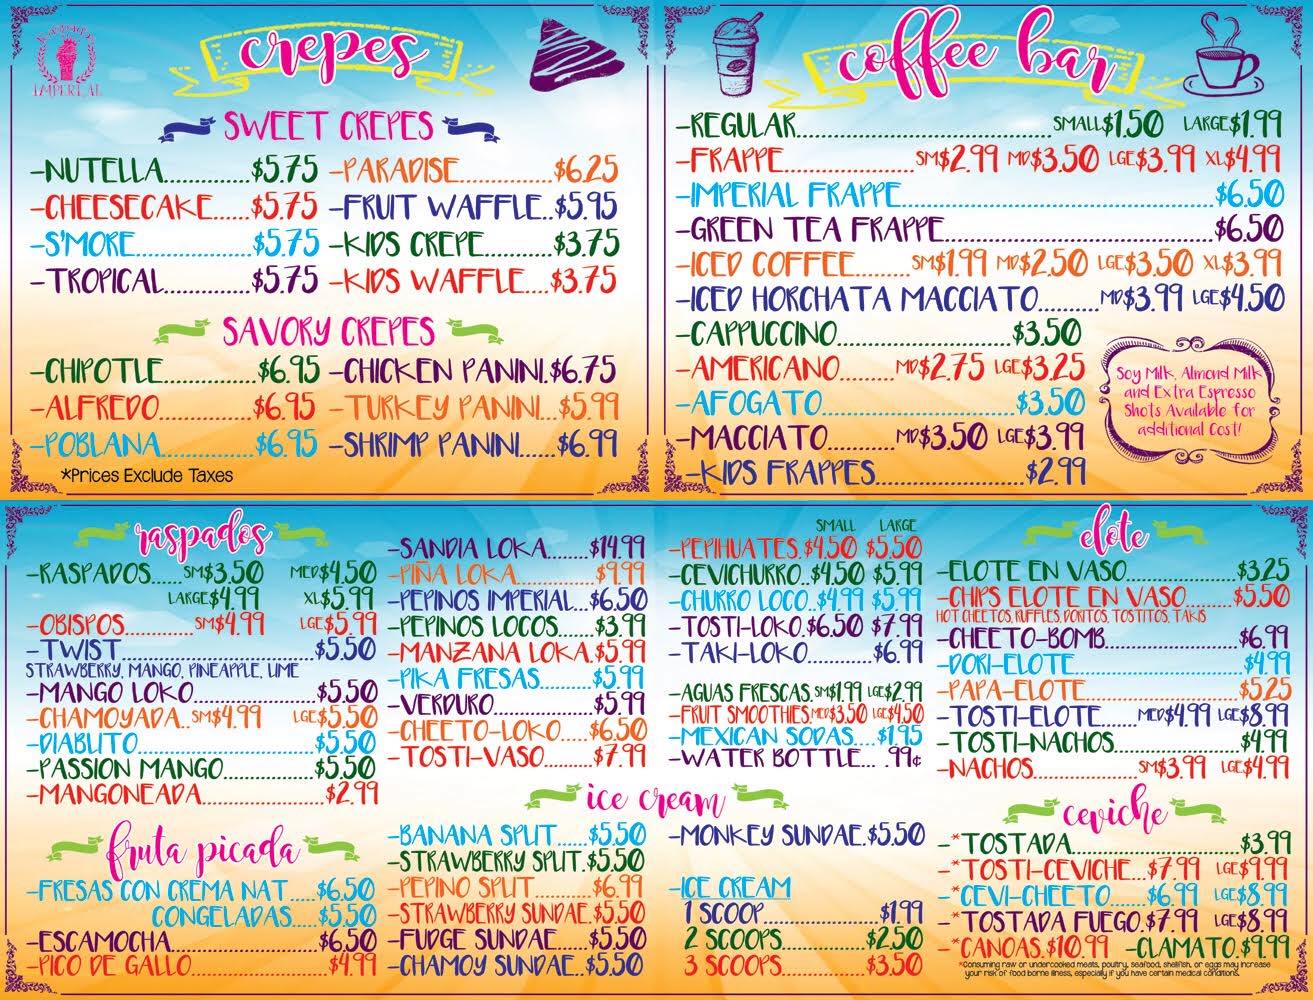 Raspados
IMPERIAL
crepes
SWEET CREPES
-NUTELLA..............$5.75
-CHEESECAKE......$5.75
-S'MORE..............$5.75
-TROPICAL..............$5.75
-PARADISE..............$6.25
-FRUIT WAFFLE..$5.95
-KIDS CREPE..........$3.75
-KIDS WAFFLE....$3.75
SAVORY CREPES
-CHIPOTLE..............$6.95
-ALFREDO..............$6.95
-POBLANA..............$6.95
-CHICKEN PANINI.$6.75
-TURKEY PANINI...$5.99
-SHRIMP PANINI......$6.99
*Prices Exclude Taxes
coffee bar
-REGULAR..............SMALL$1.50 LARGE$1.99
-FRAPPE..............SM$2.99 MD$3.50 LGE$3.99 XL$4.99
-IMPERIAL FRAPPE..............$6.50
-GREEN TEA FRAPPE..............$6.50
-ICED COFFEE........SM$1.99 MD$2.50 LGE$3.50 XL$3.99
-ICED HORCHATA MACCIATO.........MD$3.99 LGE$4.50
-CAPPUCCINO..............$3.50
-AMERICANO........MD$2.75 LGE$3.25
-AFOGATO..............$3.50
-MACCIATO..........MD$3.50 LGE$3.99
-KIDS FRAPPES..............$2.99
Soy Milk, Almond Milk
and Extra Espresso
Shots Available for
additional Cost!
raspados
-RASPADOS......SM$3.50 MED$4.50
LARGE$4.99 XL$5.99
-OBISPOS..............SM$4.99 LGE$5.99
-TWIST..............$5.50
STRAWBERRY, MANGO, PINEAPPLE, LIME
-MANGO LOKO..............$5.50
-CHAMOYADA..SM$4.99 LGE$5.50
-DIABLITO..............$5.50
-PASSION MANGO..............$5.50
-MANGONEADA..............$2.99
fruta picada
-FRESAS CON CREMA NAT....$6.50
CONGELADAS.....$5.50
-ESCAMOCHA..............$6.50
-PICO DE GALLO..............$4.99
-SANDIA LOKA.......$14.99
-PIÑA LOKA..............$9.99
-PEPINOS IMPERIAL...$6.50
-PEPINOS LOCOS......$3.99
-MANZANA LOKA.$5.99
-PIKA FRESAS........$5.99
-VERDURO..............$5.99
-CHEETO-LOKO.....$6.50
-TOSTI-VASO........$7.99
SMALL LARGE
-PEPIHUATES.$4.50 $5.50
-CEVICHURRO..$4.50 $5.99
-CHURRO LOCO..$4.99 $5.99
-TOSTI-LOKO.$6.50 $7.99
-TAKI-LOKO..........$6.99
-AGUAS FRESCAS.SM$1.99 LGE$2.99
-FRUIT SMOOTHIES.MED$3.50 LGE$4.50
-MEXICAN SODAS....$1.95
-WATER BOTTLE... .99¢
ice cream
-BANANA SPLIT......$5.50
-STRAWBERRY SPLIT.$5.50
-PEPINO SPLIT..............$6.99
-STRAWBERRY SUNDAE.$5.50
-FUDGE SUNDAE.....$5.50
-CHAMOY SUNDAE..$5.50
-MONKEY SUNDAE.$5.50
-ICE CREAM
1 SCOOP..............$1.99
2 SCOOPS..............$2.50
3 SCOOPS..............$3.50
elote
-ELOTE EN VASO..............$3.25
-CHIPS ELOTE EN VASO........$5.50
HOT CHEETOS, RUFFLES, DORITOS, TOSTITOS, TAKIS
-CHEETO-BOMB..............$6.99
-DORI-ELOTE..............$4.99
-PAPA-ELOTE..............$5.25
-TOSTI-ELOTE......MED$4.99 LGE$8.99
-TOSTI-NACHOS..............$4.99
-NACHOS..............SM$3.99 LGE$4.99
ceviche
-*TOSTADA..............$3.99
-*TOSTI-CEVICHE...$7.99 LGE$9.99
-*CEVI-CHEETO......$6.99 LGE$8.99
-*TOSTADA FUEGO.$7.99 LGE$8.99
-*CANOAS.$10.99 -CLAMATO.$9.99
*Consuming raw or undercooked meats, poultry, seafood, shellfish, or eggs may increase
your risk of food borne illness, especially if you have certain medical conditions.